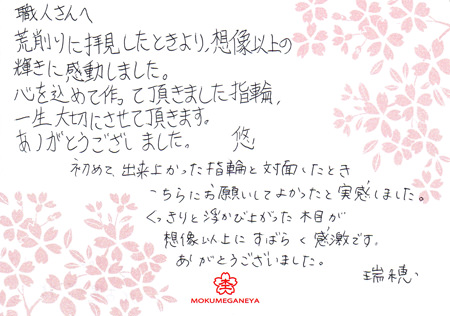 職人さんへ
荒削りに拝見したときより、想像以上の
輝きに感動しました。
心を込めて作って頂きました指輪、
一生大切にさせて頂きます。
ありがとうございました。 悠
初めて、出来上がった指輪と対面したとき
こちらにお願いしてよかったと実感しました。
くっきりと浮かび上がった木目が
想像以上にすばらしく感激です。
ありがとうございました。
瑞穂
MOKUMEGANEYA